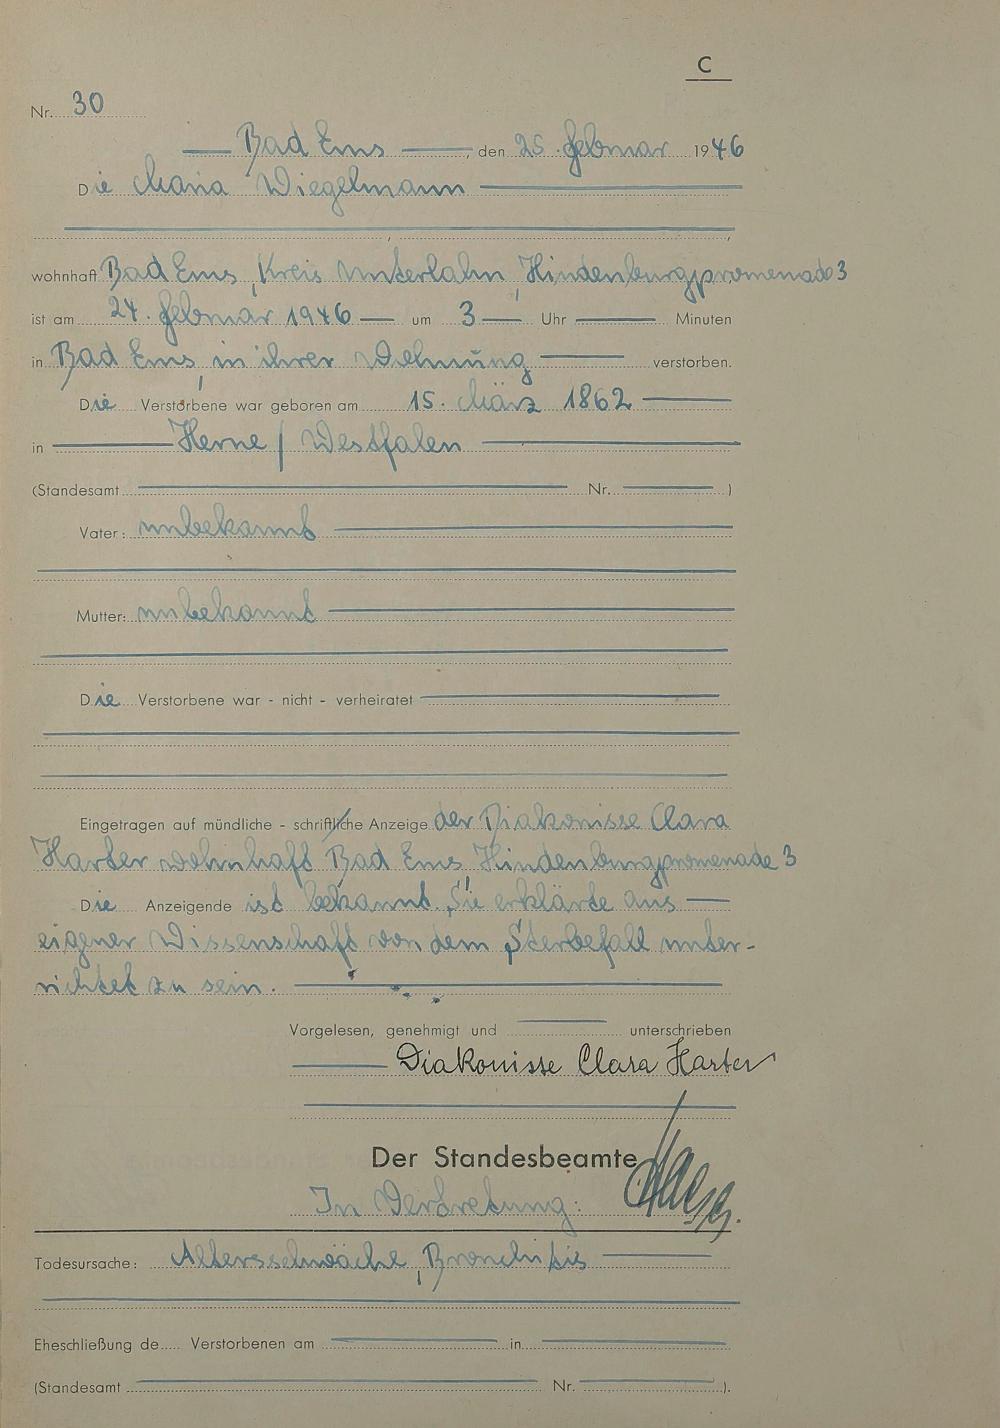 C
Nr. 30
Bad Ems, den 25. Februar 1946
Die Maria Wiegelmann
wohnhaft Bad Ems, Kreis Unterlahn, Hindenburgpromenade 3
ist am 24. Februar 1946 um 3 Uhr Minuten
in Bad Ems, in ihrer Wohnung verstorben.
Die Verstorbene war geboren am 15. März 1862
in Herne / Westfalen
(Standesamt Nr. )
Vater: unbekannt
Mutter: unbekannt
Die Verstorbene war - nicht - verheiratet
Eingetragen auf mündliche - schriftliche Anzeige der Diakonisse Clara
Harter wohnhaft Bad Ems Hindenburgpromenade 3
Die Anzeigende ist bekannt. Sie erklärte aus
eigner Wissenschaft von dem Sterbefall unter-
richtet zu sein.
Vorgelesen, genehmigt und unterschrieben
Diakonisse Clara Harter
Der Standesbeamte
In Vertretung:
Todesursache: Altersschwäche, Bronchitis
Eheschließung de Verstorbenen am in
(Standesamt Nr. ).